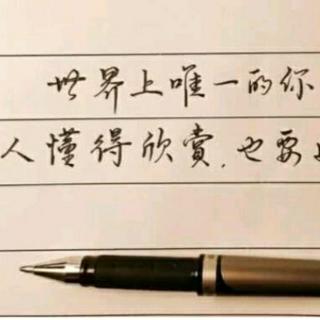 世界上唯一的你
人懂得欣赏,也要